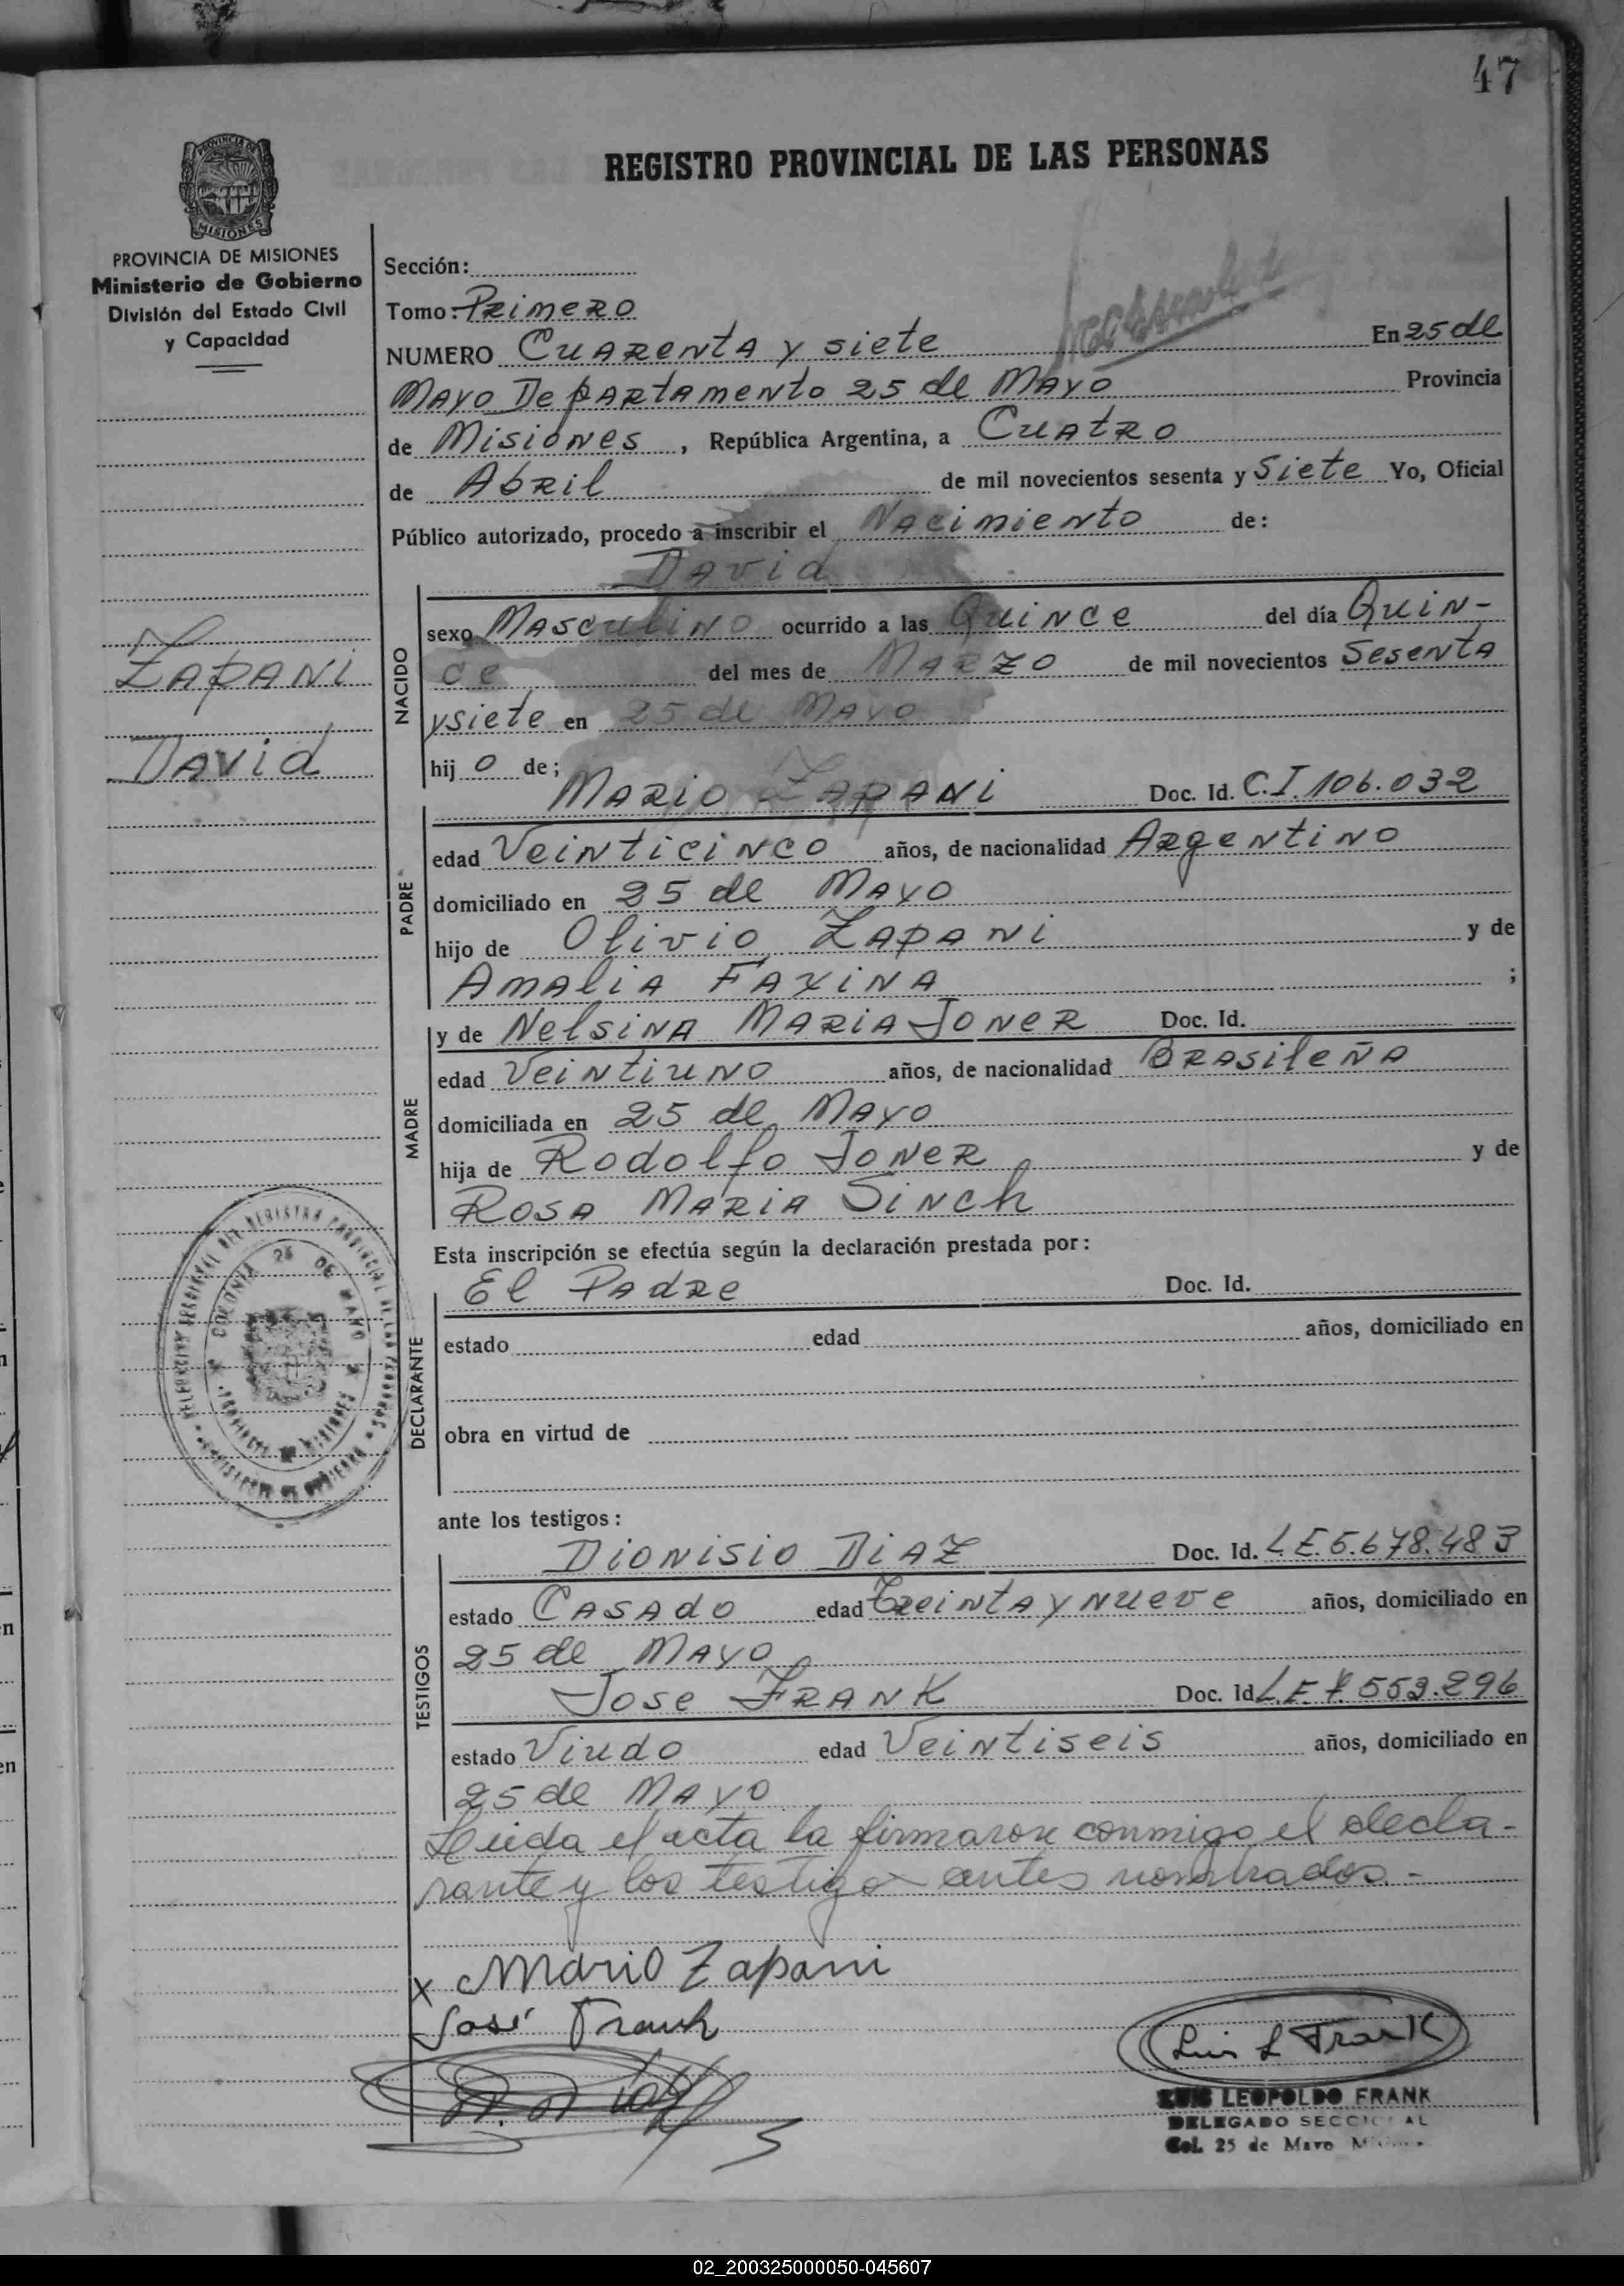 47
REGISTRO PROVINCIAL DE LAS PERSONAS
PROVINCIA DE MISIONES
Ministerio de Gobierno
División del Estado Civil
y Capacidad
Sección:
Tomo: Primero
NUMERO Cuarenta y siete En 25 de
Mayo Departamento 25 de Mayo Provincia
de Misiones, República Argentina, a Cuatro
de Abril de mil novecientos sesenta y Siete Yo, Oficial
Público autorizado, procedo a inscribir el Nacimiento de:
David
Zapani
David
NACIDO
sexo Masculino ocurrido a las Quince del día Quin-
ce del mes de Marzo de mil novecientos Sesenta
y siete en 25 de Mayo
hij o de;
Mario Zapani Doc. Id. C.I. 106.032
PADRE
edad Veinticinco años, de nacionalidad Argentino
domiciliado en 25 de Mayo
hijo de Olivio Zapani y de
Amalia Faxina ;
MADRE
y de Nelsina Maria Joner Doc. Id.
edad Veintiuno años, de nacionalidad Brasileña
domiciliada en 25 de Mayo
hija de Rodolfo Joner y de
Rosa Maria Sinch
Esta inscripción se efectúa según la declaración prestada por:
El Padre Doc. Id.
DECLARANTE
estado edad años, domiciliado en
obra en virtud de
COLONIA 25 DE MAYO
ante los testigos:
Dionisio Diaz Doc. Id. L.E. 5.678.483
TESTIGOS
estado Casado edad Treinta y nueve años, domiciliado en
25 de Mayo
Jose Frank Doc. Id L.E. 559.296
estado Viudo edad Veintiseis años, domiciliado en
25 de Mayo
Leida el acta la firmaron conmigo el decla-
rante y los testigos antes nombrados.-
x Mario Zapani
José Frank
D. Diaz
Luis L Frank
LUIS LEOPOLDO FRANK
DELEGADO SECCIONAL
Col. 25 de Mayo Misiones
02_200325000050-045607